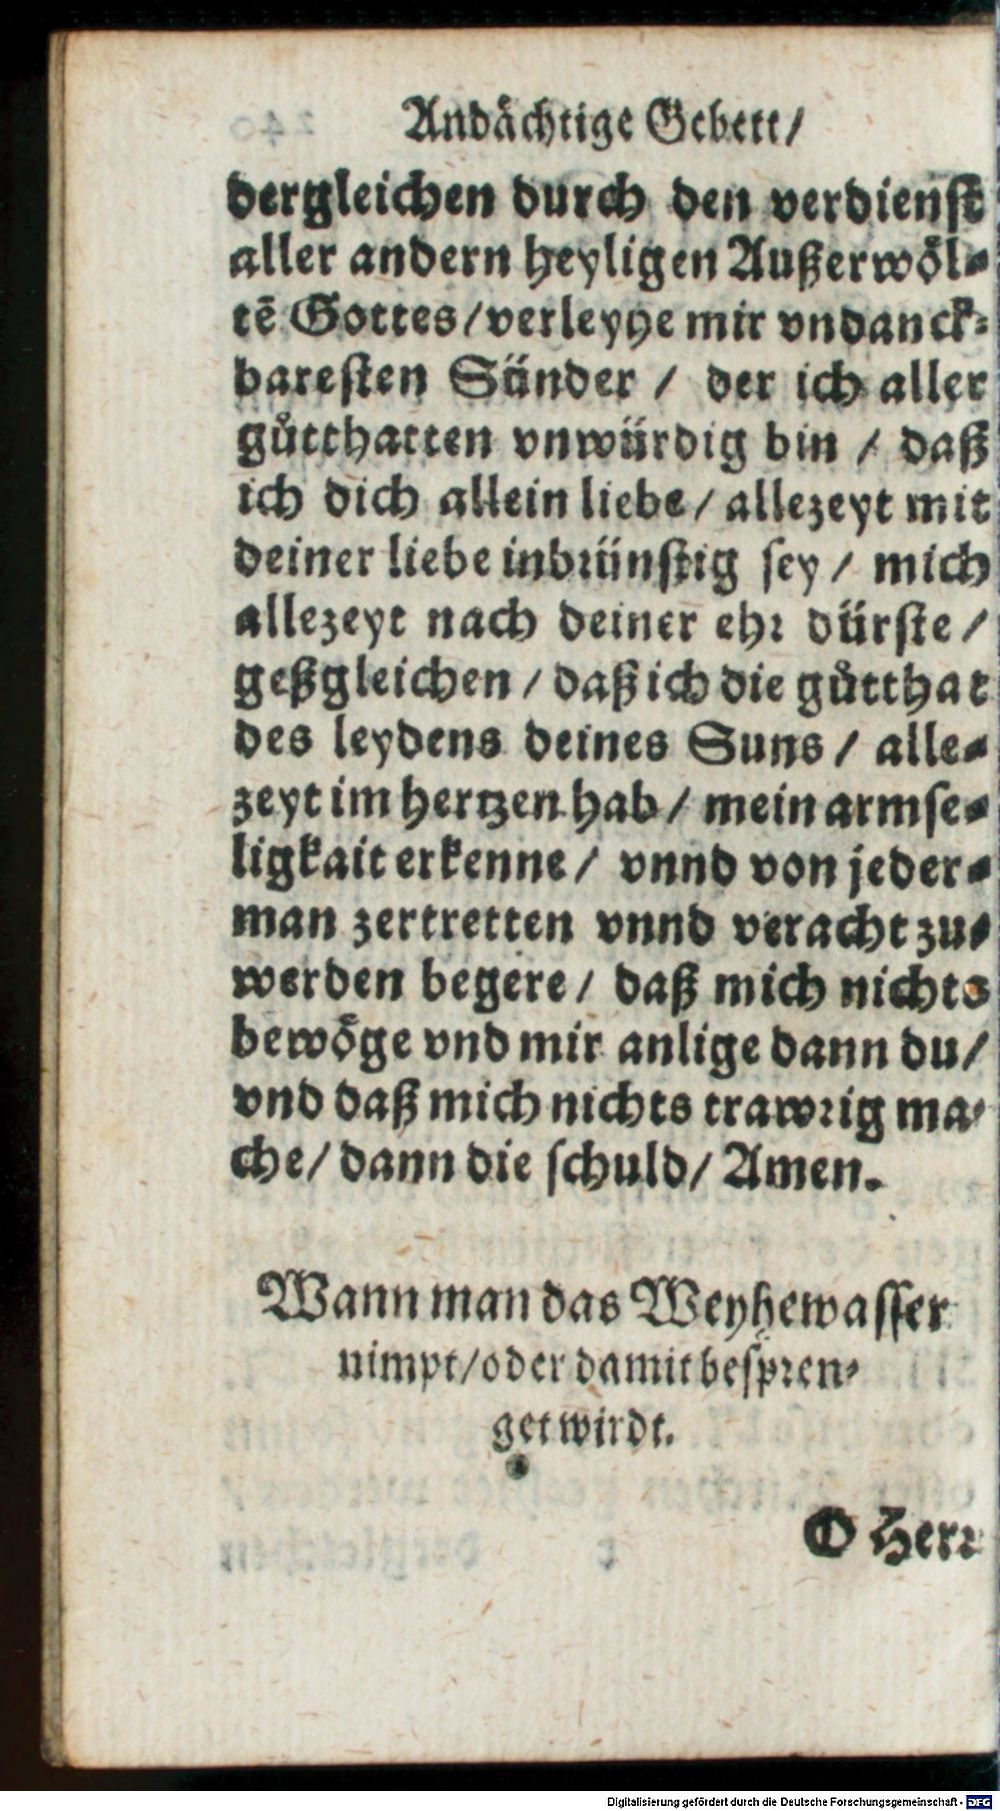 Andächtige Gebett/
dergleichen durch den verdienst
aller andern heyligen Außerwöl-
tē Gottes/verleyhe mir vndanck-
baresten Sünder / der ich aller
gůtthatten vnwürdig bin / daß
ich dich allein liebe/ allezeyt mit
deiner liebe inbrünstig sey / mich
allezeyt nach deiner ehr dürste /
geßgleichen / daß ich die gůtthat
des leydens deines Suns / alle-
zeyt im hertzen hab / mein armse-
ligkait erkenne / vnnd von jeder-
man zertretten vnnd veracht zu-
werden begere / daß mich nichts
bewöge vnd mir anlige dann du/
vnd daß mich nichts trawrig ma-
che/ dann die schuld/ Amen.
Wann man das Weyhewasser
nimpt/oder damit bespren-
get wirdt.
O Herr
Digitalisierung gefördert durch die Deutsche Forschungsgemeinschaft - DFG